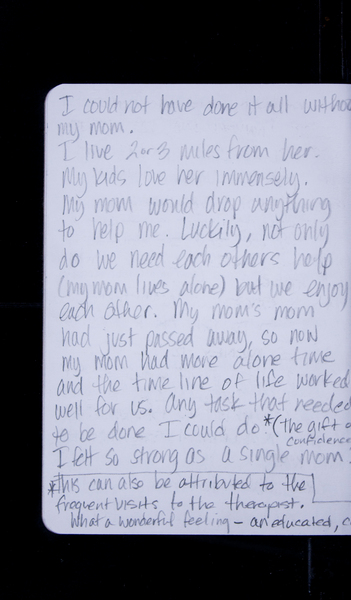 I could not have done it all withou
my mom.
I live 2 or 3 miles from her.
My kids love her immensely.
My mom would drop anything
to help me. Luckily, not only
do we need each others help
(my mom lives alone) but we enjoy
each other. My mom's mom
had just passed away, so now
my mom had more alone time
and the time line of life worked
well for us. Any task that needed
to be done I could do *(the gift o
confidence
I felt so strong as a single mom
*this can also be attributed to the
frequent visits to the therapist.
What a wonderful feeling - an educated, c